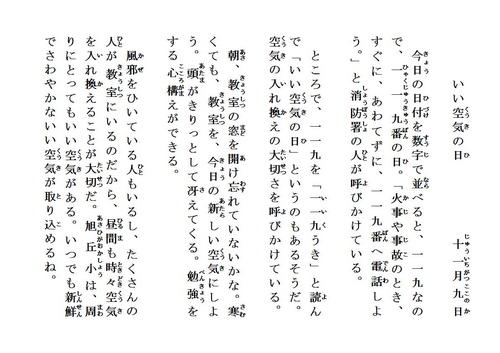 いい空気の日　十一月九日
今日の日付を数字で並べると、一一九なの
で、一一九番の日。「火事や事故のとき、
すぐに、あわてずに、一一九番へ電話しよ
う。」と消防署の人が呼びかけている。
ところで、一一九を「一一九うき」と読ん
で「いい空気の日」というのもあるそうだ。
空気の入れ換えの大切さを呼びかけている。
朝、教室の窓を開け忘れていないかな。寒
くても、教室を、今日の新しい空気にしよ
う。頭がきりっとして冴えてくる。勉強を
する心構えができる。
風邪をひいている人もいるし、たくさんの
人が教室にいるのだから、昼間も時々空気
を入れ換えることが大切だ。旭丘小は、周
りにとってもいい空気がある。いつでも新鮮
でさわやかないい空気が取り込めるね。